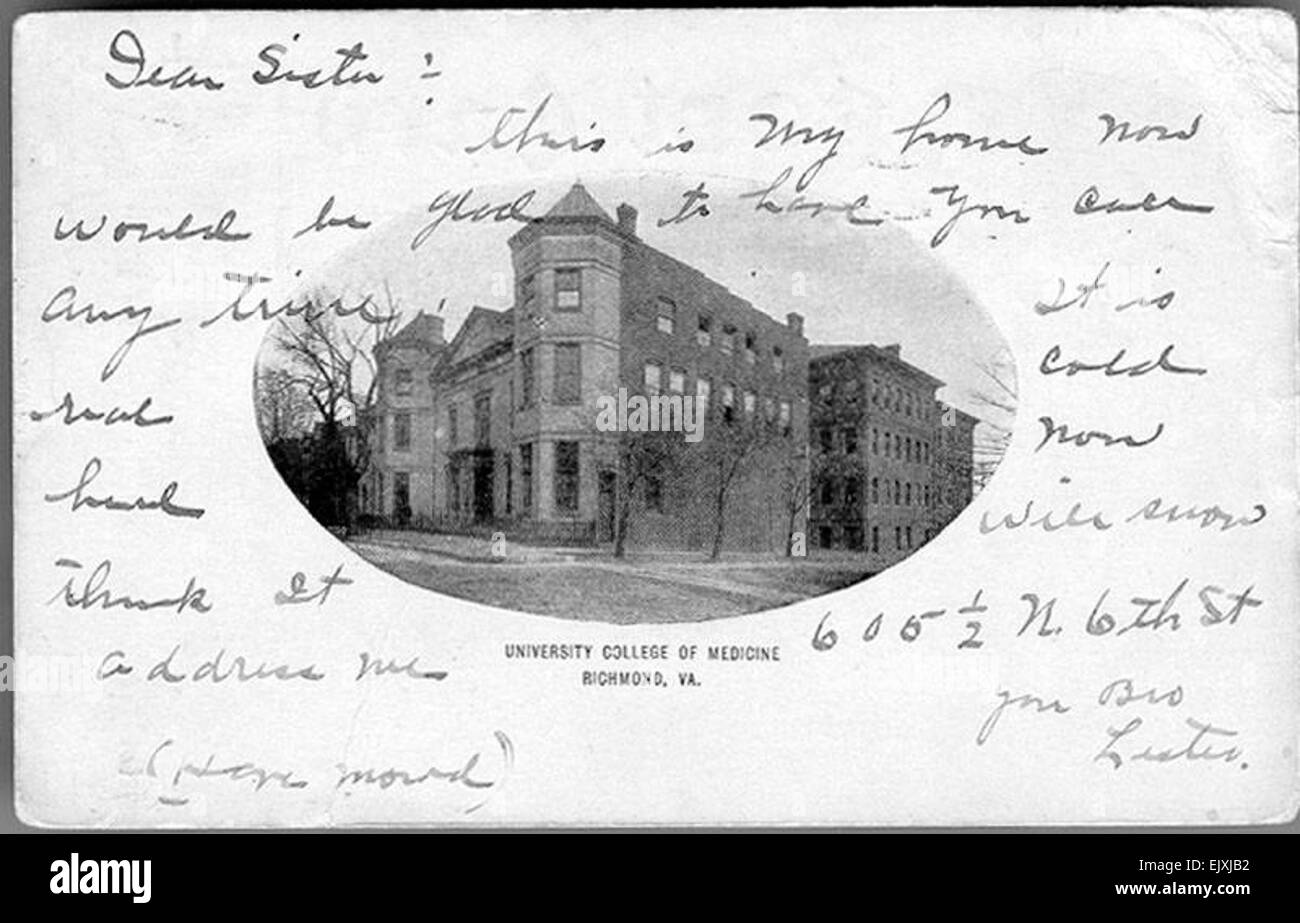 Dear Sister :-
this is my home now
would be glad to have you call
any time! It is
real cold
hard now
think it will snow
address me 605 ½ N. 6th St
UNIVERSITY COLLEGE OF MEDICINE
RICHMOND, VA.
you Bro
Lester.
(Have moved)
alamy
a
alamy
Image ID: EJXJB2
www.alamy.com